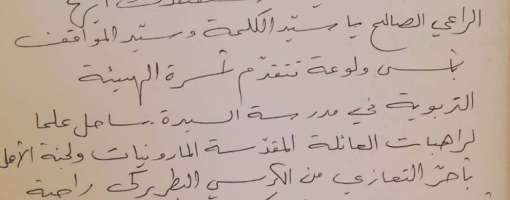 الراعي الصالح يا سيّد الكلمة وسيّد المواقف
ولوعة تتقدّم أسرة الهيئة
التربوية في مدرسة السيدة. ساحل علما
لراهبات العائلة المقدّسة المارونيات ولجنة الأهل
بأحرّ التعازي من الكرسي البطريركي راجية